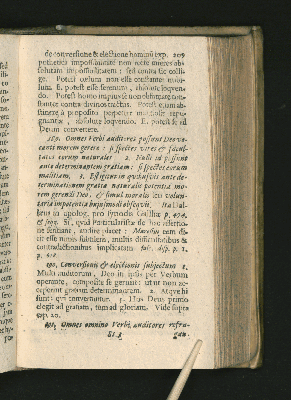 de conversione & electione hominũ exp. 209
potheticè impossibilitate non rectè infertes ab-
solutam impossibilitatem: sed contrà sic collige
ge. Potest cœlum non esse constanter nubi-
lum. E. potest esse serenum, absolutè loquen-
do. Potest homo impius non obstinate con-
stanter contra divinos tractus. Potest ejus ab-
stinere à proposito perpetuæ
gnantiæ, absolutè loquendo. E. potest se ad
Deum convertere.
189. Omnes Verbi auditores possunt Deo vo-
canti morem gerere: si spectes vires & facul-
tates eorum naturales 2. Nulli id possunt
ante determinantem gratiam: si spectes eorum
malitiam. 3. Efficitur in quibusvis ante de-
terminationem gratiæ naturalis potentia mo-
rem gerendi Deo, & simul moralis seu volun-
taria impotentia hujusmodi obsequii. Ita Dal-
læus in apolog. pro synodis Galliæ p. 474.
et seqq. Si, quod Particularistæ de hac assertio-
ne sentiant, audire placet: Maresius eam di-
cit esse nimis subtilem, multis difficultatibus &
contradictionibus implicatam. Sist. disp. p. 1.
p. 412.
190. Conversionis & electionis subjectum 1.
Multi auditorum, Deo in ipsis per Verbum
operante, composite se gerunt: ut ut non ac-
ceperint gratiam determinantem. 2. Atque hi
sunt, qui convertuntur. 3. Hos Deus primò
elegit ad gratiam, tum ad gloriam. Vide supra
cap. 20.
191. Omnes omnino Verbi auditores refra-
gan-